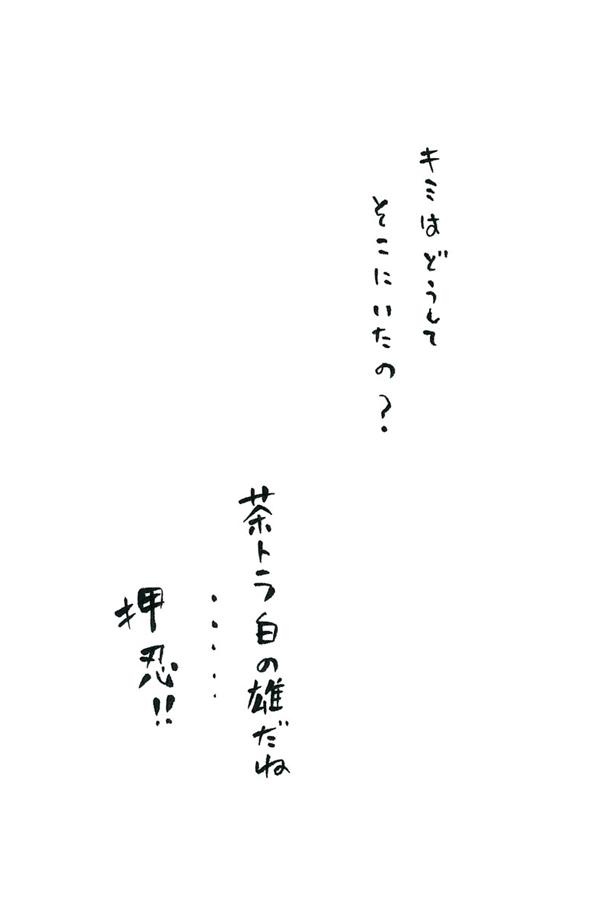 キミはどうして
そこにいたの?
茶トラ白の雄だね
・・・・・
押忍!!